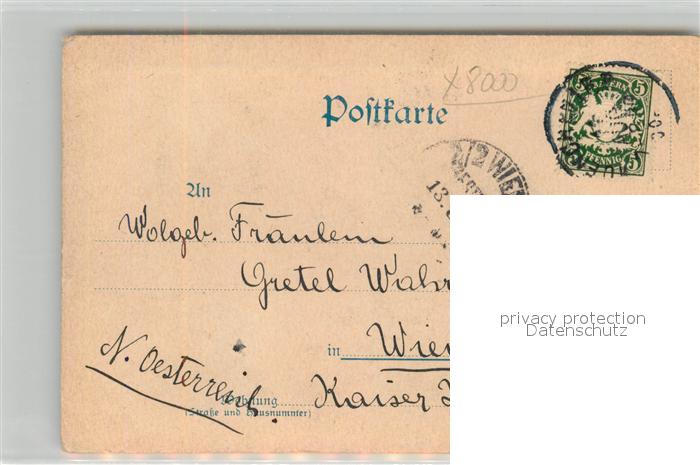 x 8000
Postkarte
BAYERN
5
PFENNIG 5
8/2 WIEN
13.
An
Wolgeb. Fräulein
Gretel Wahr
in Wien
N. Oesterreich.
Kaiser
Wohnung
(Straße und Hausnummer)
privacy protection
Datenschutz